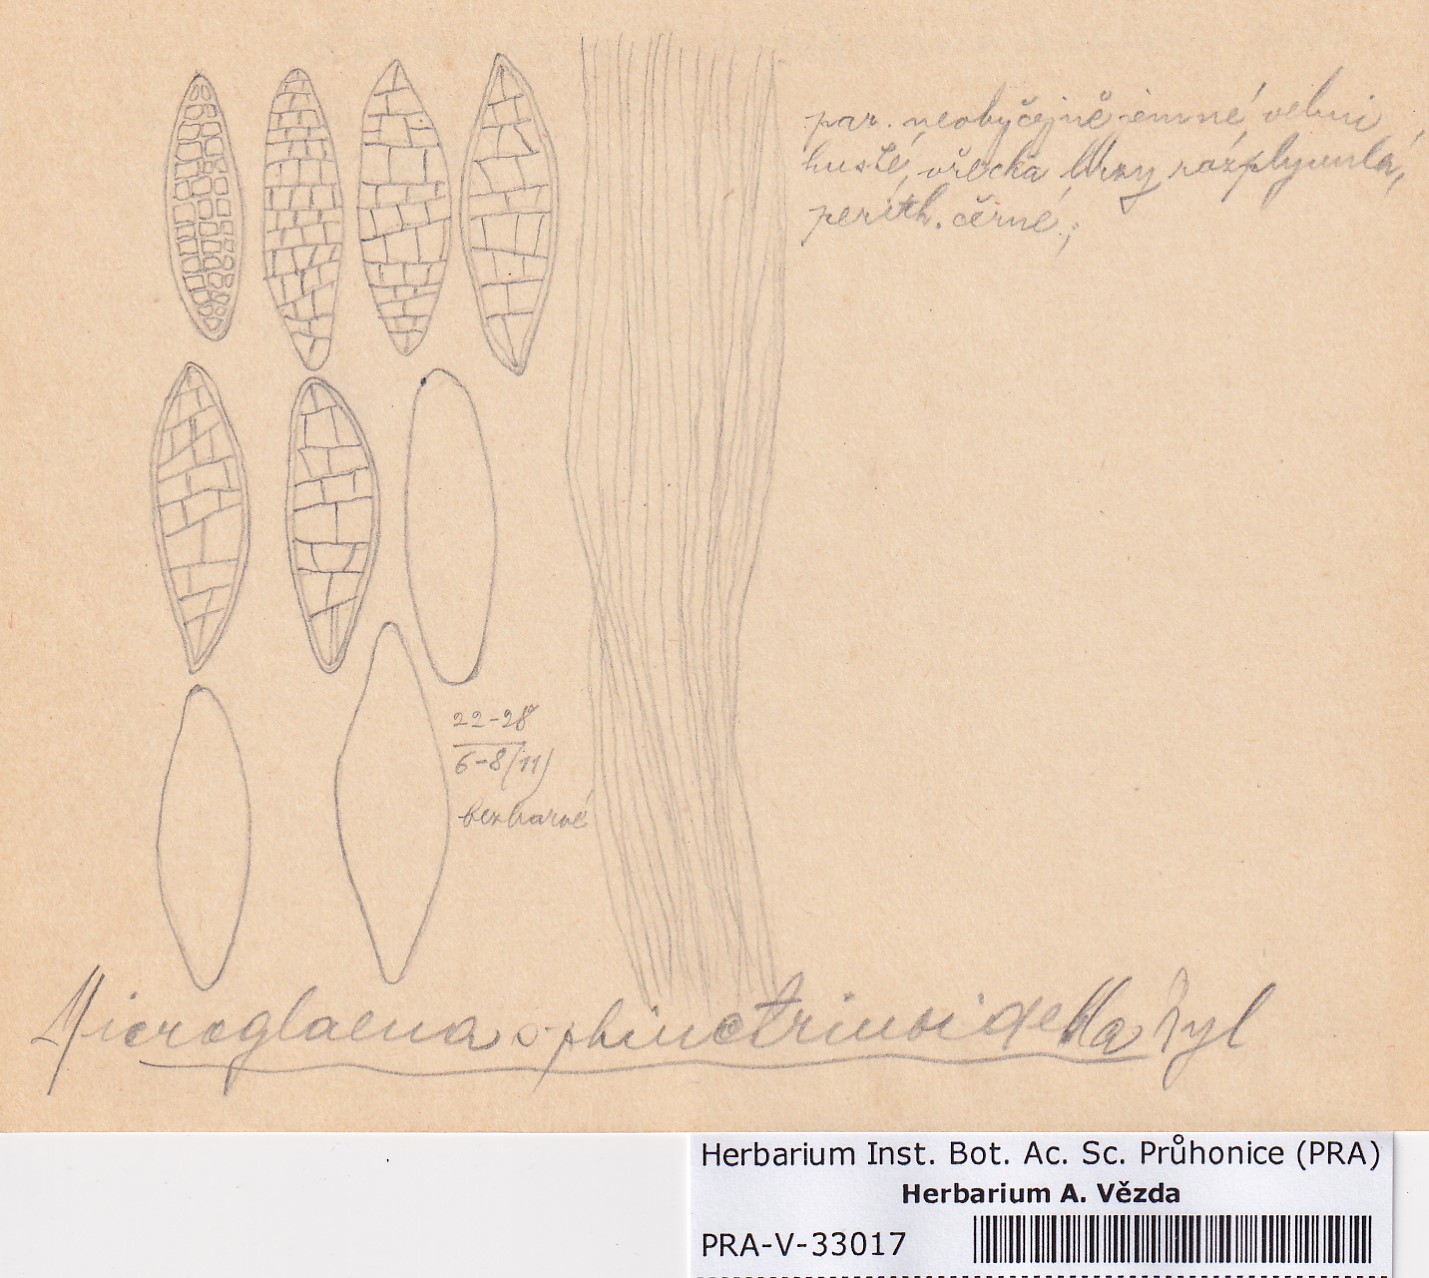 par. neobyčejně jemné velmi
husté, vřecka brzy rozplynulá,
perith. černé,;
22-28
6-8(11)
bezbarvé
Microglaena sphinctrinoidella Nyl
Herbarium Inst. Bot. Ac. Sc. Průhonice (PRA)
Herbarium A. Vězda
PRA-V-33017